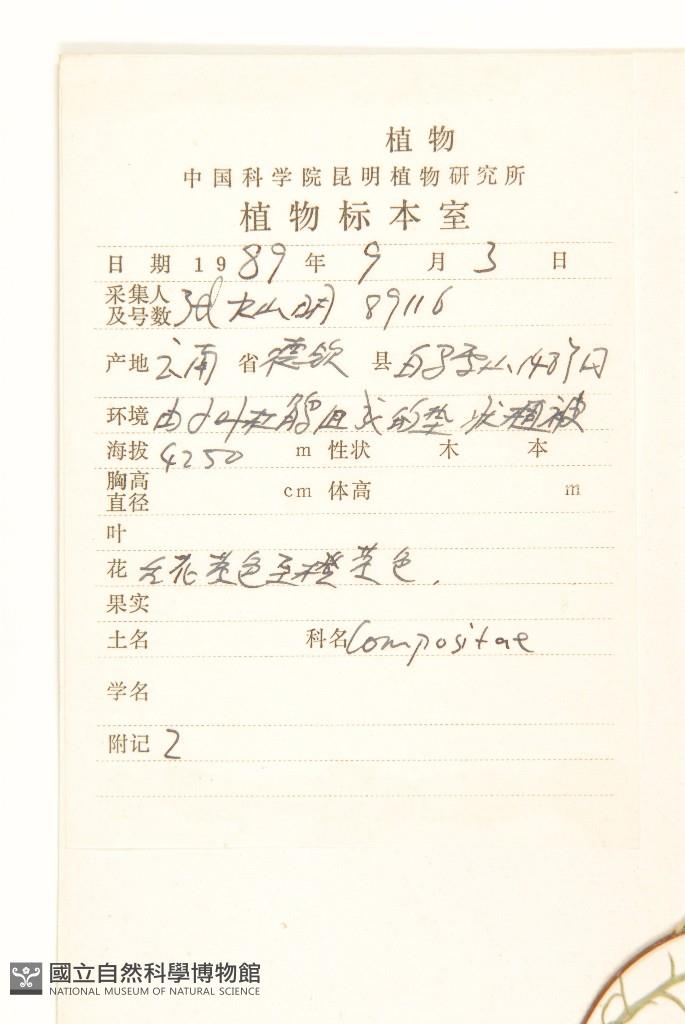 植物
中国科学院昆明植物研究所
植物标本室
日期 1989年 9月 3日
采集人
及号数 张大明 89116
产地 云南 省 德钦 县 白马雪山
环境 垫状植被
海拔 4250 m 性状 木 本
胸高
直径 cm 体高 m
叶
花 花黄色至橙黄色.
果实
土名 科名 Compositae
学名
附记 2
國立自然科學博物館
NATIONAL MUSEUM OF NATURAL SCIENCE